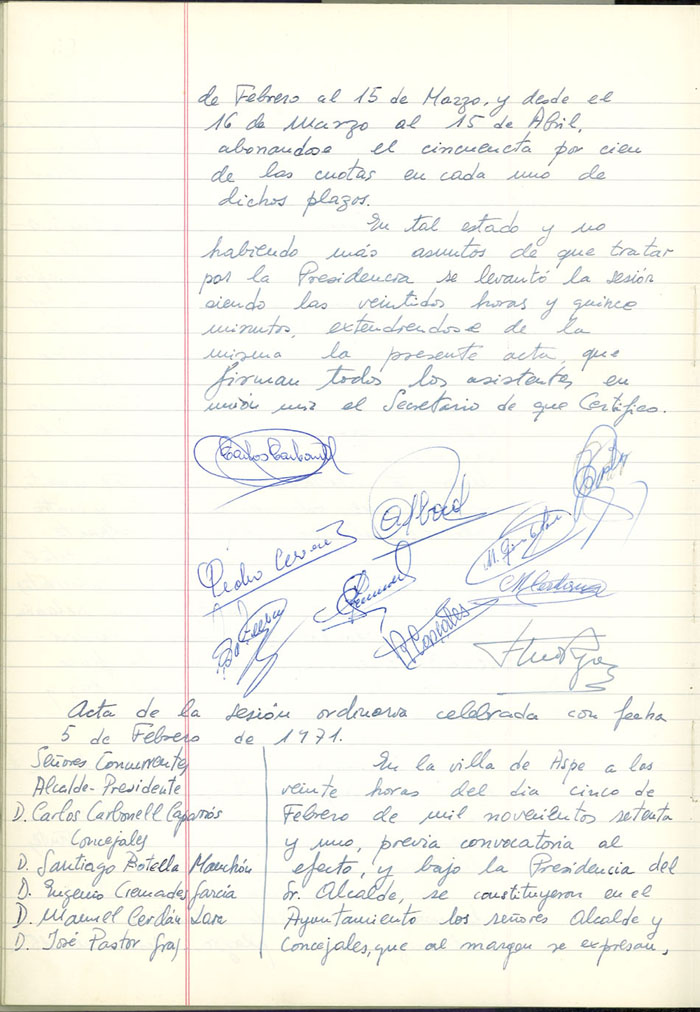 de Febrero al 15 de Marzo, y desde el
16 de Marzo al 15 de Abril,
abonandose el cincuenta por cien
de las cuotas en cada uno de
dichos plazos.
En tal estado y no
habiendo más asuntos de que tratar
por la Presidencia se levantó la sesión
siendo las veintidos horas y quince
minutos, extendiendose de la
misma la presente acta, que
firman todos los asistentes en
unión mía el Secretario de que Certifico.
Carlos Carbonell
Pedro
M.
M Cerdán
R Gonzales
Acta de la sesión ordinaria celebrada con fecha
5 de Febrero de 1971.
Señores Concurrentes
Alcalde-Presidente
D. Carlos Carbonell Caparrós
Concejales
D. Santiago Botella Manchón
D. Eugenio Cremades García
D. Manuel Cerdán Lara
D. José Pastor Gras
En la villa de Aspe a las
veinte horas del dia cinco de
Febrero de mil novecientos setenta
y uno, previa convocatoria al
efecto, y bajo la Presidencia del
Sr. Alcalde, se constituyeron en el
Ayuntamiento los señores Alcalde y
Concejales, que al margen se expresan,